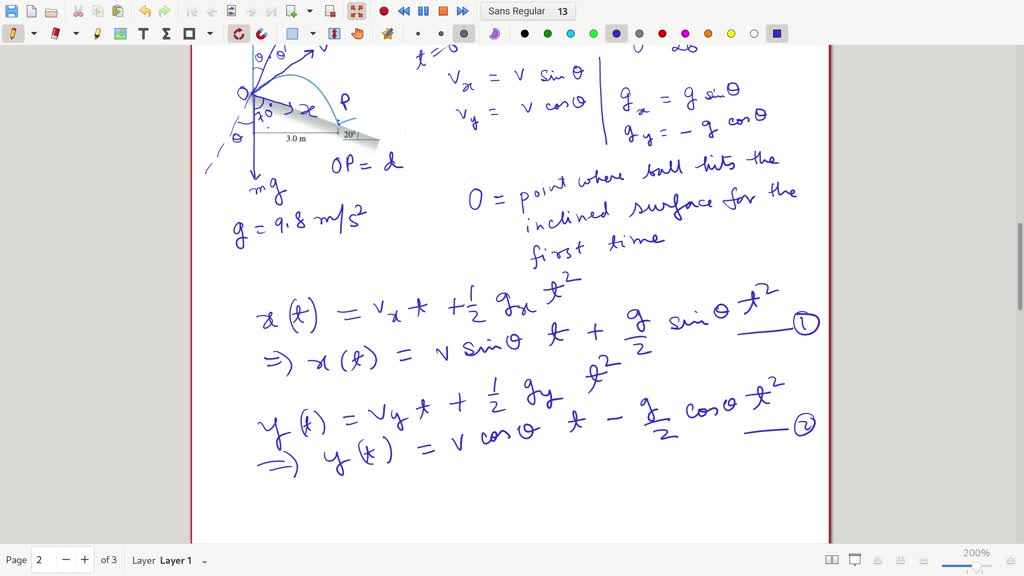 Sans Regular 13
t = 0
v
θ θ'
v_x = v sin θ
v_y = v cos θ
g_x = g sin θ
g_y = - g cos θ
O
70°
x
P
θ
3.0 m
20°
OP = d
mg
g = 9.8 m/s²
O = point where ball hits the
inclined surface for the
first time
x(t) = v_x t + 1/2 g_x t²
⇒ x(t) = v sin θ t + g/2 sin θ t² —— ①
y(t) = v_y t + 1/2 g_y t²
⇒ y(t) = v cos θ t - g/2 cos θ t² —— ②
Page 2 of 3 Layer Layer 1
200%